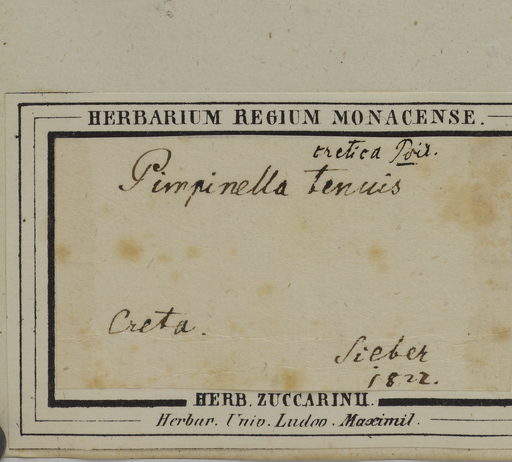 HERBARIUM REGIUM MONACENSE.
cretica Poir.
Pimpinella tenuis
Creta.
Sieber
1822.
HERB. ZUCCARINII.
Herbar. Univ. Ludov. Maximil.